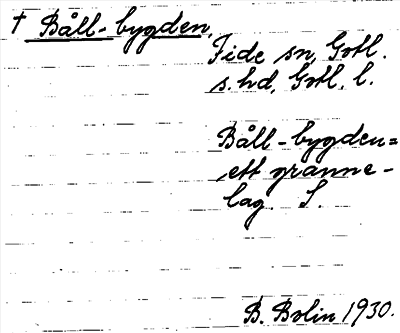 † Båll-bygden,
Fide sn, Gotl.
s. hd, Gotl. l.
Båll-bygden=
ett granne-
lag. S.
B. Bolin 1930.